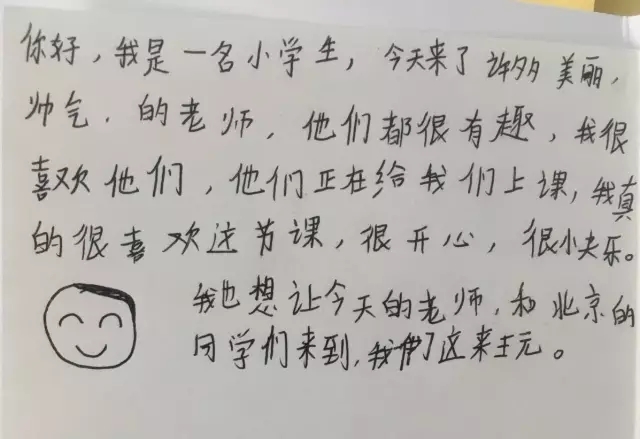 你好，我是一名小学生，今天来了许多美丽，
帅气．的老师，他们都很有趣，我很
喜欢他们，他们正在给我们上课，我真
的很喜欢这节课，很开心，很快乐。
我也想让今天的老师，和北京的
同学们来到，我们这来玩。